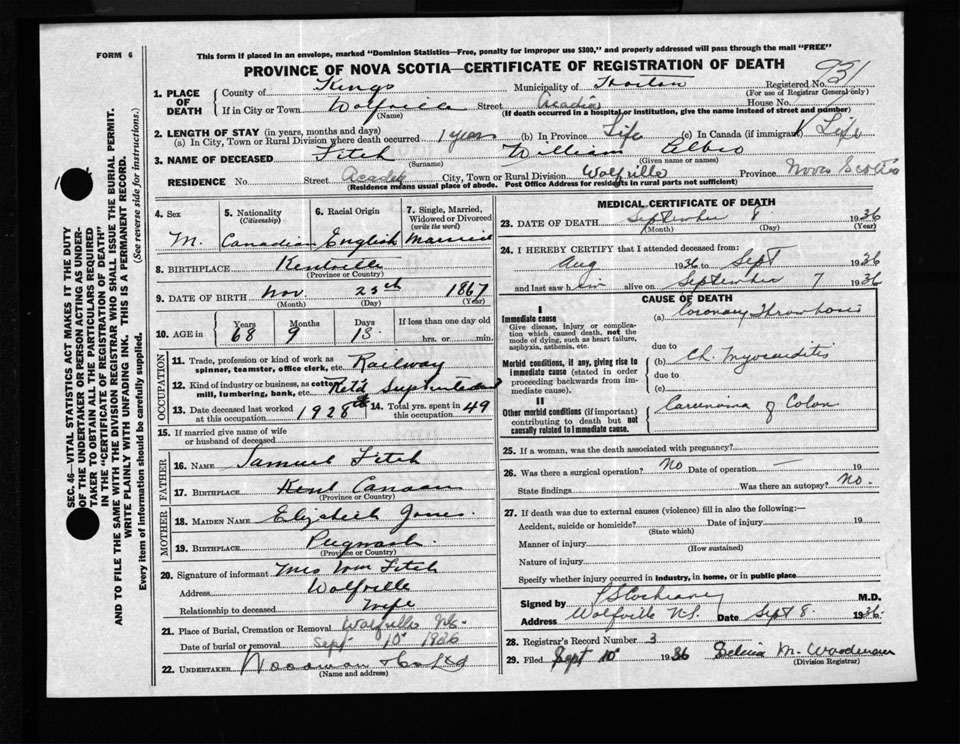 FORM 6
This form if placed in an envelope, marked "Dominion Statistics—Free, penalty for improper use $300," and properly addressed will pass through the mail "FREE"
PROVINCE OF NOVA SCOTIA—CERTIFICATE OF REGISTRATION OF DEATH
1. PLACE OF DEATH County of Kings Municipality of Horton Registered No. 931
(For use of Registrar General only)
If in City or Town Wolfville Street Acadia House No.
(Name) (If death occurred in a hospital or institution, give the name instead of street and number)
2. LENGTH OF STAY (in years, months and days)
(a) In City, Town or Rural Division where death occurred 1 year (b) In Province Life (c) In Canada (if immigrant) Life
3. NAME OF DECEASED Fitch William
(Surname) (Given name or names)
RESIDENCE No. Street City, Town or Rural Division Wolfville Province Nova Scotia
(Residence means usual place of abode. Post Office Address for residents in rural parts not sufficient)
SEC. 46—VITAL STATISTICS ACT MAKES IT THE DUTY
OF THE UNDERTAKER OR PERSON ACTING AS UNDER-
TAKER TO OBTAIN ALL THE PARTICULARS REQUIRED
IN THE "CERTIFICATE OF REGISTRATION OF DEATH"
AND TO FILE THE SAME WITH THE DIVISION REGISTRAR WHO SHALL ISSUE THE BURIAL PERMIT.
WRITE PLAINLY WITH UNFADING INK. THIS IS A PERMANENT RECORD.
Every item of information should be carefully supplied. (See reverse side for instructions.)
4. Sex 5. Nationality (Citizenship) 6. Racial Origin 7. Single, Married, Widowed or Divorced (write the word)
M. Canadian English Married
8. BIRTHPLACE Kentville
(Province or Country)
9. DATE OF BIRTH Nov. 25th 1867
(Month) (Day) (Year)
10. AGE in Years Months Days If less than one day old
68 9 13 hrs. or min.
OCCUPATION
11. Trade, profession or kind of work as spinner, teamster, office clerk, etc. Railway
12. Kind of industry or business, as cotton mill, lumbering, bank, etc. Ret'd Superintendent
13. Date deceased last worked at this occupation 1928 14. Total yrs. spent in this occupation 49
15. If married give name of wife or husband of deceased
FATHER
16. NAME Samuel Fitch
17. BIRTHPLACE Canaan
(Province or Country)
MOTHER
18. MAIDEN NAME Elizabeth Jones
19. BIRTHPLACE Pugwash
(Province or Country)
20. Signature of informant Mrs Wm Fitch
Address Wolfville
Relationship to deceased Wife
21. Place of Burial, Cremation or Removal Wolfville N.S.
Date of burial or removal Sept 10" 1936
22. UNDERTAKER
(Name and address)
MEDICAL CERTIFICATE OF DEATH
23. DATE OF DEATH September 8 1936
(Month) (Day) (Year)
24. I HEREBY CERTIFY that I attended deceased from:
Aug 1936 to Sept 1936
and last saw him alive on September 7 1936
CAUSE OF DEATH
I
Immediate cause
Give disease, injury or complication which caused death, not the mode of dying, such as heart failure, asphyxia, asthenia, etc.
(a) Coronary Thrombosis
due to
Morbid conditions, if any, giving rise to immediate cause (stated in order proceeding backwards from immediate cause).
(b) Ch. Myocarditis
due to
(c)
II
Other morbid conditions (if important) contributing to death but not causally related to immediate cause.
Carcinoma of Colon
25. If a woman, was the death associated with pregnancy?
26. Was there a surgical operation? No Date of operation — 19
State findings Was there an autopsy? No.
27. If death was due to external causes (violence) fill in also the following:—
Accident, suicide or homicide? Date of injury 19
(State which)
Manner of injury
(How sustained)
Nature of injury
Specify whether injury occurred in industry, in home, or in public place
Signed by Cochrane M.D.
Address Wolfville N.S. Date Sept 8. 1936.
28. Registrar's Record Number 3
29. Filed Sept 10" 1936 M. Woodman
(Division Registrar)